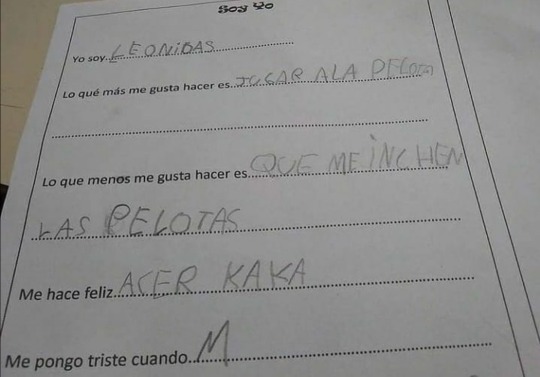 Soy Yo
Yo soy..LEONIDAS
Lo qué más me gusta hacer es..JUGAR ALA PELOTA
Lo que menos me gusta hacer es..QUE ME INCHEN
LAS PELOTAS
Me hace feliz..ACER KAKA
Me pongo triste cuando..M